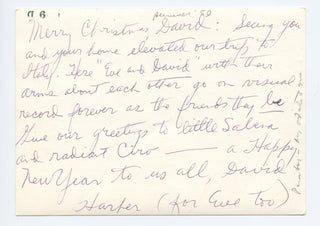 Merry Christmas David: Seeing you
and your home elevated our trip to
Italy. Here "Eve and David" with their
arms about each other go on visual
record forever as the friends they be
Give our greetings to little Salina
and radiant Ciro — a Happy
New Year to us all, David
Harper (for Eve too)